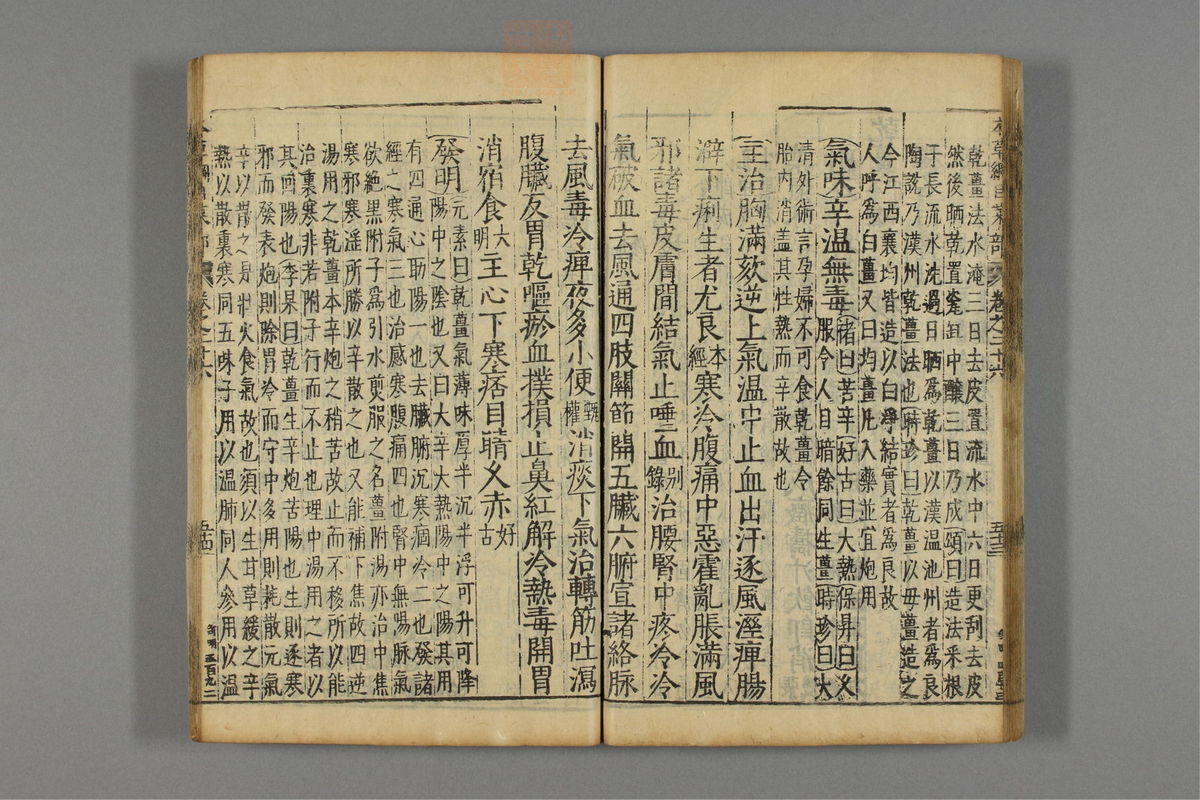 乾薑法水淹三日去皮置流水中六日更刮去皮
然後晒乾置瓷缸中釀三日乃成頌曰造法采根
于長流水洗過日晒爲乾薑以漢温池州者爲良
陶說乃漢州乾薑法也時珍曰乾薑以母薑造之
今江西襄均皆造以白淨結實者爲良故
人呼爲白薑又曰均薑凡入藥並宜炮用
氣味辛温無毒褚曰苦辛好古曰大熱保昇曰又
服令人目暗餘同生薑時珍曰大
清外術言孕婦不可食乾薑令
胎内消盖其性熱而辛散故也
主治胸滿欬逆上氣温中止血出汗逐風溼痺腸
澼下痢生者尤良本經寒冷腹痛中惡霍亂脹滿風
邪諸毒皮膚間結氣止唾血别錄治腰腎中疼冷冷
氣破血去風通四肢關節開五臟六腑宣諸絡脉
去風毒冷痺夜多小便甄權消痰下氣治轉筋吐瀉
腹臟反胃乾嘔瘀血撲損止鼻紅解冷熱毒開胃
消宿食大明主心下寒痞目睛久赤好古
發明元素曰乾薑氣薄味厚半沉半浮可升可降
陽中之陰也又曰大辛大熱陽中之陽其用
有四通心助陽一也去臟腑沉寒痼冷二也發諸
經之寒氣三也治感寒腹痛四也腎中無陽脉氣
欲絶黑附子爲引水煎服之名薑附湯亦治中焦
寒邪寒淫所勝以辛散之也又能補下焦故四逆
湯用之乾薑本辛炮之稍苦故止而不移所以能
治裏寒非若附子行而不止也理中湯用之者以
其回陽也李杲曰乾薑生辛炮苦陽也生則逐寒
邪而發表炮則除胃冷而守中多用則耗散元氣
辛以散之是壯火食氣故也須以生甘草緩之辛
熱以散裏寒同五味子用以温肺同人參用以温
本草綱目菜部 卷之二十六 五十三
本草綱目菜部 卷之二十六 五十四